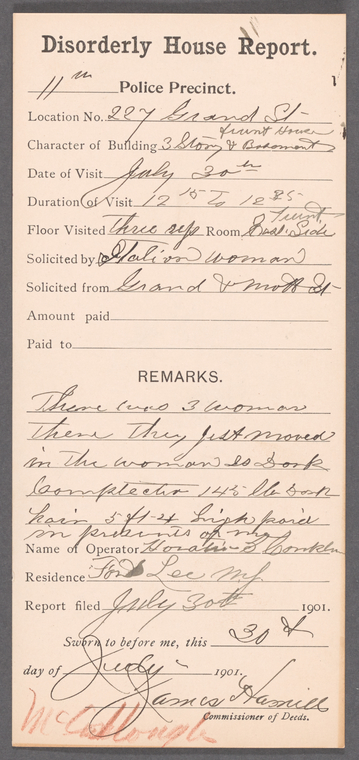 Disorderly House Report.
11th Police Precinct.
Location No. 227 Grand St
frunt House
Character of Building 3 Story & Basement
Date of Visit July 30th
Duration of Visit 12 15 To 12 25
frunt
Floor Visited three ups Room East Side
Solicited by Italian woman
Solicited from Grand & Mott St
Amount paid
Paid to
REMARKS.
There was 3 woman
there they just moved
in the woman is Dark
Complectin 145 lb Dark
hair 5 ft-4 high paid
in presents of me
Name of Operator Horatio S Conklin
Residence Fort Lee NJ
Report filed July 30th 1901.
Sworn to before me, this 30th
day of July 1901.
James Hamill
Commissioner of Deeds.
McCullough